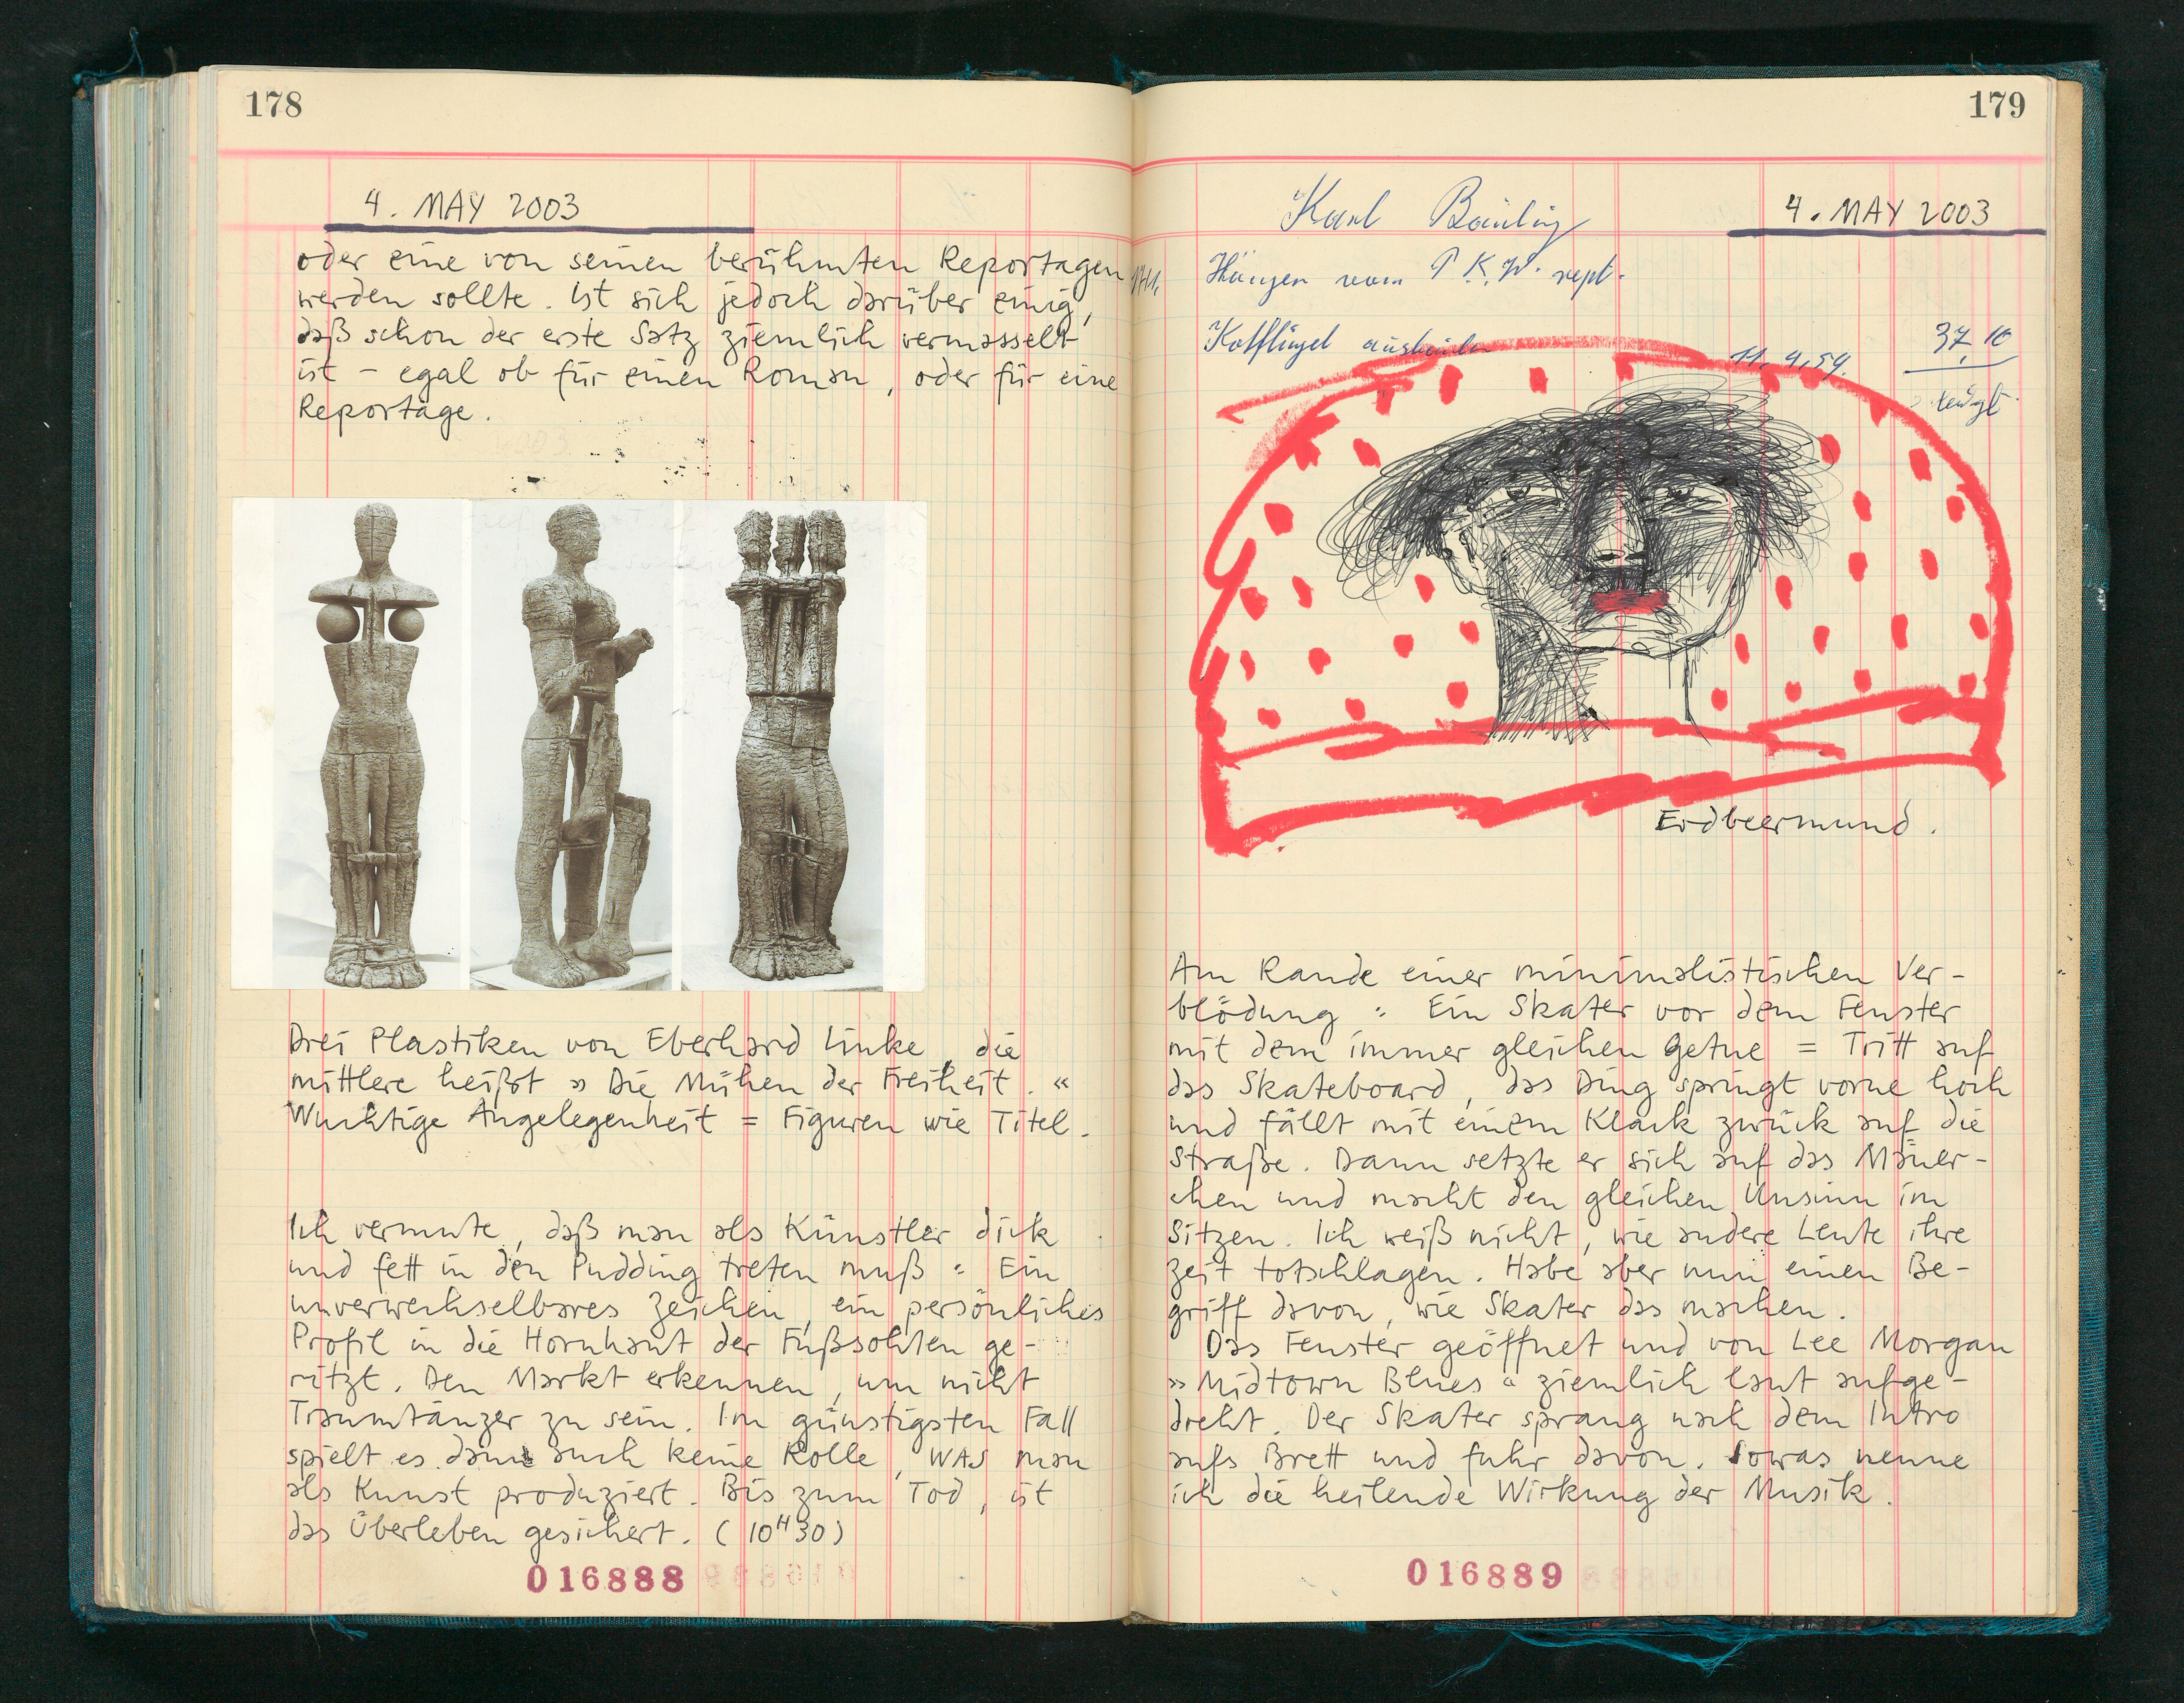 178
4. MAY 2003
oder eine von seinen berühmten Reportagen
werden sollte. Ist sich jedoch darüber einig,
daß schon der erste Satz ziemlich vermasselt
ist – egal ob für einen Roman, oder für eine
Reportage.
Drei Plastiken von Eberhard Linke, die
mittlere heißt » Die Mühen der Freiheit. «
Wuchtige Angelegenheit = Figuren wie Titel.
Ich vermute, daß man als Künstler dick
und fett in den Pudding treten muß : Ein
unverwechselbares Zeichen, ein persönliches
Profil in die Hornhaut der Fußsohlen ge-
ritzt. Den Markt erkennen, um nicht
Traumtänzer zu sein. Im günstigsten Fall
spielt es dann auch keine Rolle, WAS man
als Kunst produziert. Bis zum Tod, ist
das Überleben gesichert. (10H30)
016888
179
Karl
4. MAY 2003
vom P.K.W. rept.
Kotflügel
37,10
11.4.54.
Erdbeermund.
Am Rande einer minimalistischen Ver-
blödung : Ein Skater vor dem Fenster
mit dem immer gleichen Getue = Tritt auf
das Skateboard, das Ding springt vorne hoch
und fällt mit einem Klack zurück auf die
Straße. Dann setzte er sich auf das Mäuer-
chen und macht den gleichen Unsinn im
Sitzen. Ich weiß nicht, wie andere Leute ihre
Zeit totschlagen. Habe aber nun einen Be-
griff davon, wie Skater das machen.
Das Fenster geöffnet und von Lee Morgan
» Midtown Blues « ziemlich laut aufge-
dreht. Der Skater sprang nach dem Intro
aufs Brett und fuhr davon. Sowas nenne
ich die heilende Wirkung der Musik.
016889